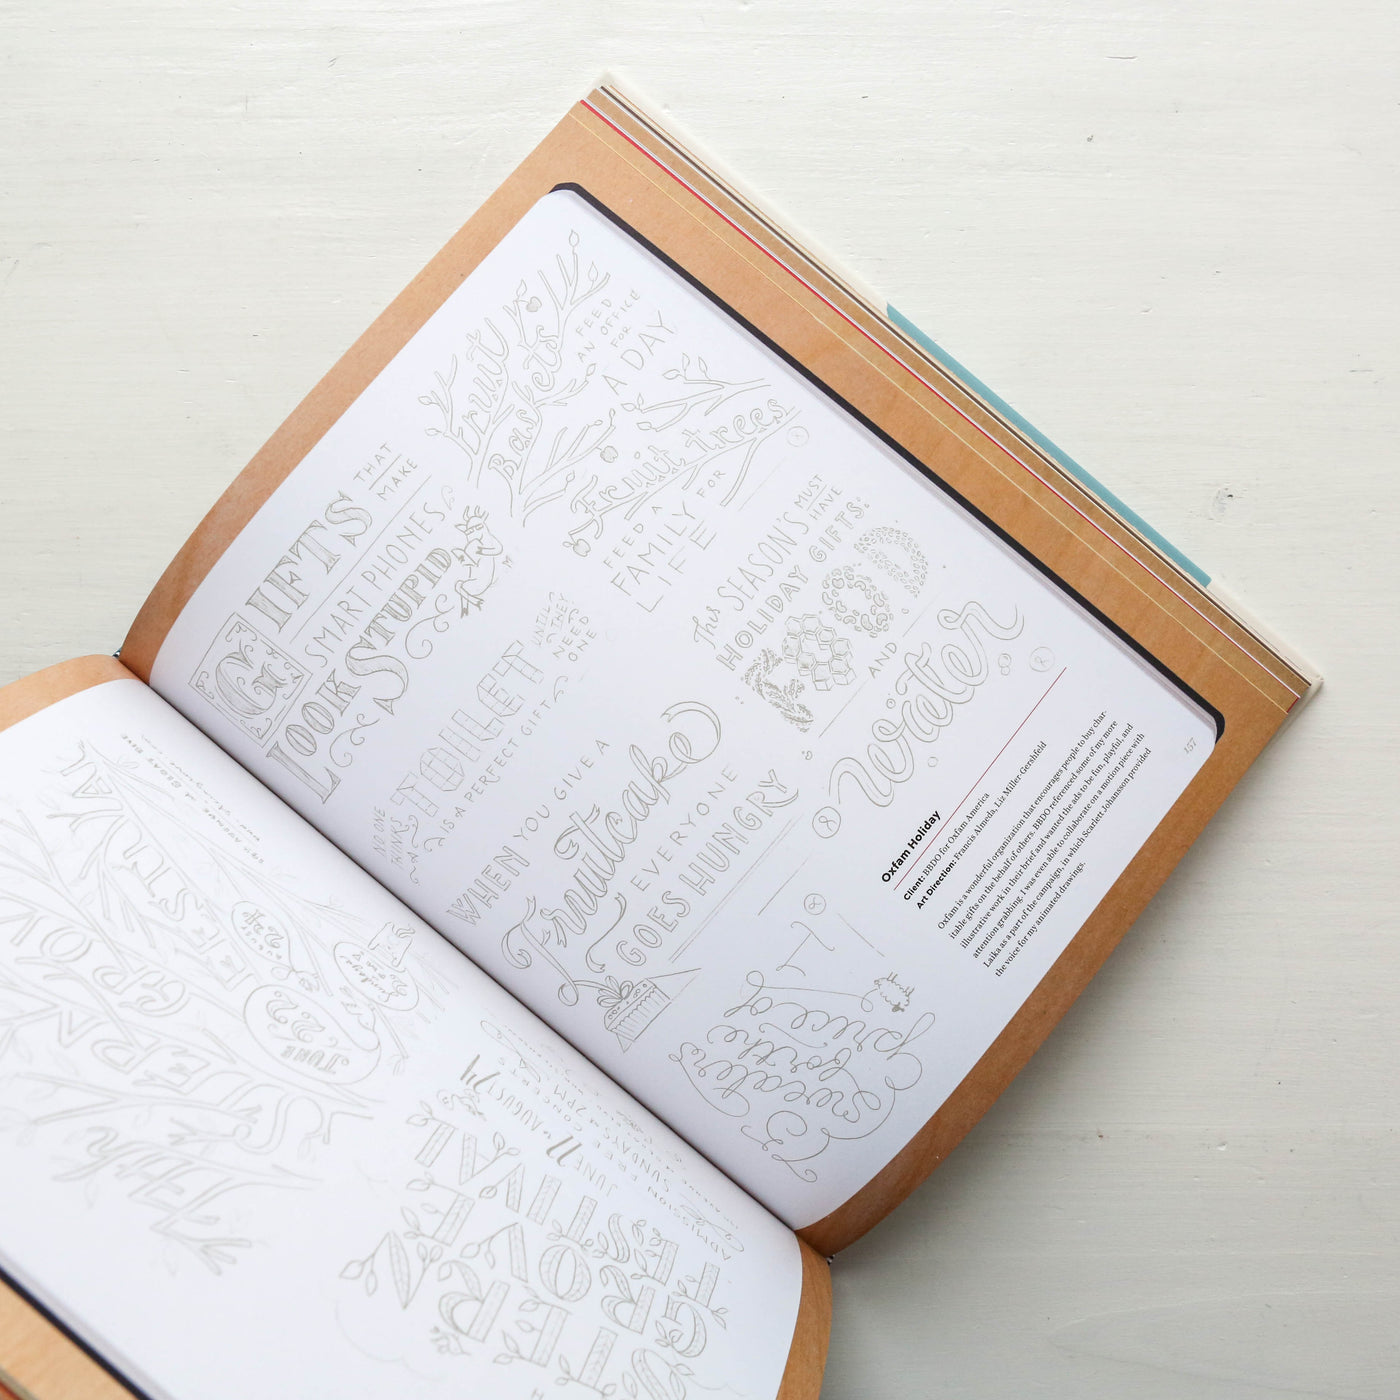 Fruit
Baskets
FEED
AN OFFICE
FOR
A DAY
Fruit trees
FEED A
FAMILY FOR
LIFE
GIFTS THAT
MAKE
SMART PHONES
LOOK STUPID
THIS SEASON'S MUST
HAVE
HOLIDAY GIFTS:
FOOD
AND
water
NO ONE
THINKS A
TOILET
IS A PERFECT GIFT
UNTIL
THEY
NEED
ONE
WHEN YOU GIVE A
Fruitcake
EVERYONE
GOES HUNGRY
sweaters
for the
price of
1
Oxfam Holiday
Client: BBDO for Oxfam America
Art Direction: Francis Almeda, Liz Miller-Gershfeld
Oxfam is a wonderful organization that encourages people to buy char-
itable gifts on the behalf of others. BBDO referenced some of my more
illustrative work in their brief and wanted the ads to be fun, playful, and
attention grabbing. I was even able to collaborate on a motion piece with
Laika as a part of the campaign, in which Scarlett Johansson provided
the voice for my animated drawings.
157
STERN GROVE
FESTIVAL
JUNE
22
SUNDAYS
2PM
JUNE 22 to AUGUST 24
ADMISSION FREE
STERN
GROVE
FESTIVAL